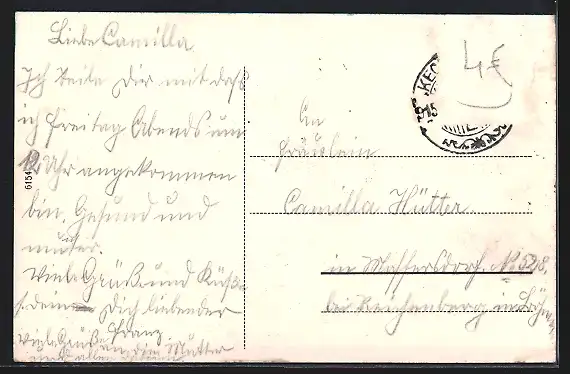 Liebe Camilla
Ich Teile Dir mit daß
ich Freitag Abends um
12 Uhr angekommen
bin. Gesund und
munter.
Viele Grüße und Küße
Dich liebender
Franz
Viele Grüße an die Mutter
An
Fräulein
Camilla Hütter
in Maffersdorf. No 528.
bei Reichenberg in Böhmen
6154
KEC
915
4€